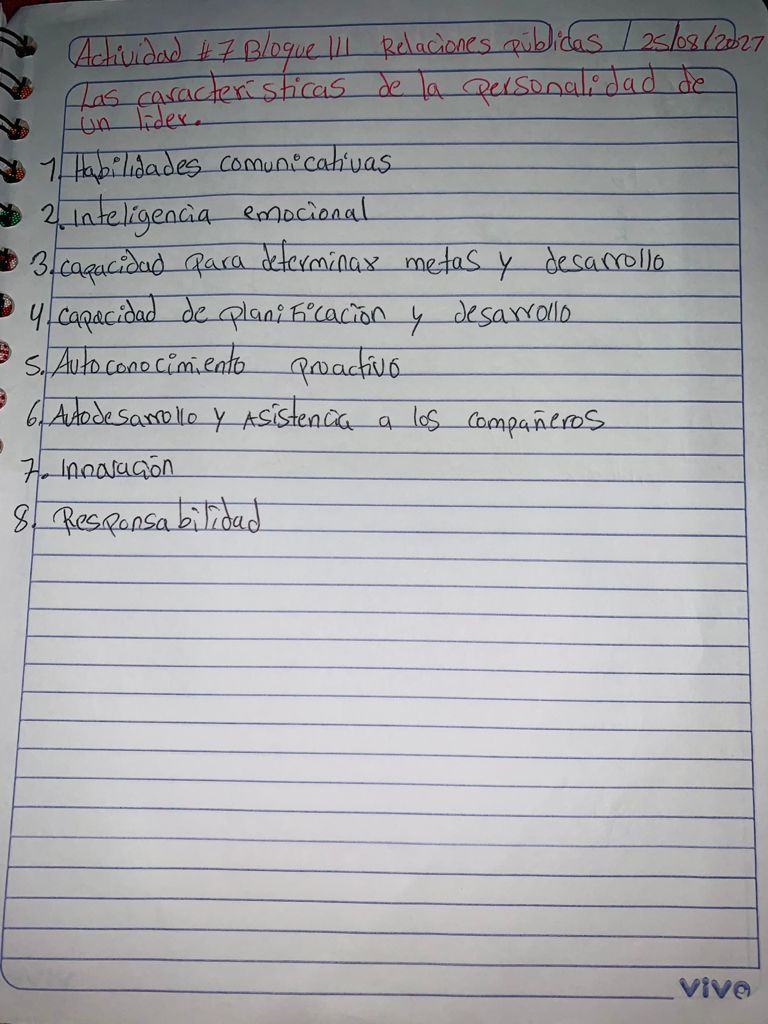 Actividad #7 Bloque III Relaciones públicas / 25/08/2027
Las características de la personalidad de
un líder.
1. Habilidades comunicativas
2. Inteligencia emocional
3. capacidad para determinar metas y desarrollo
4. capacidad de planificación y desarrollo
5. Autoconocimiento proactivo
6. Autodesarrollo y Asistencia a los compañeros
7. Innovación
8. Responsabilidad
vive